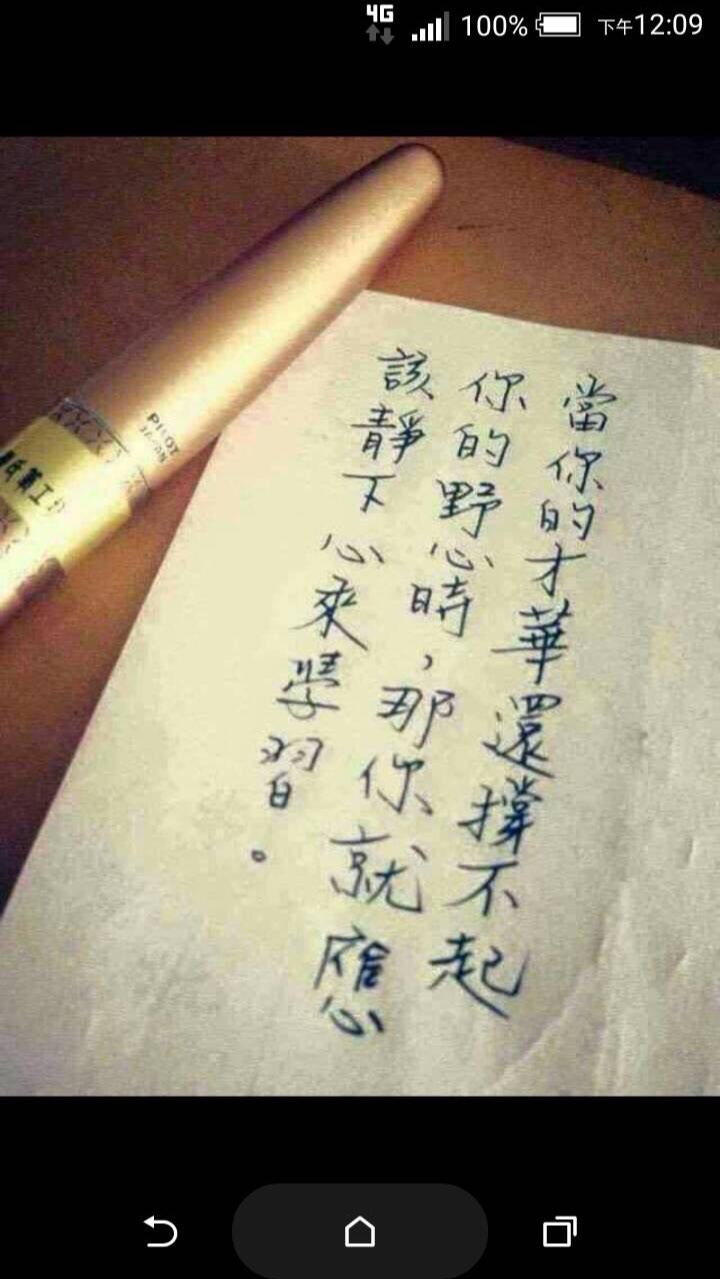 4G 100% 下午12:09
PILOT
JAPAN
當你的才華還撐不起
你的野心時，那你就應
該靜下心來學習。